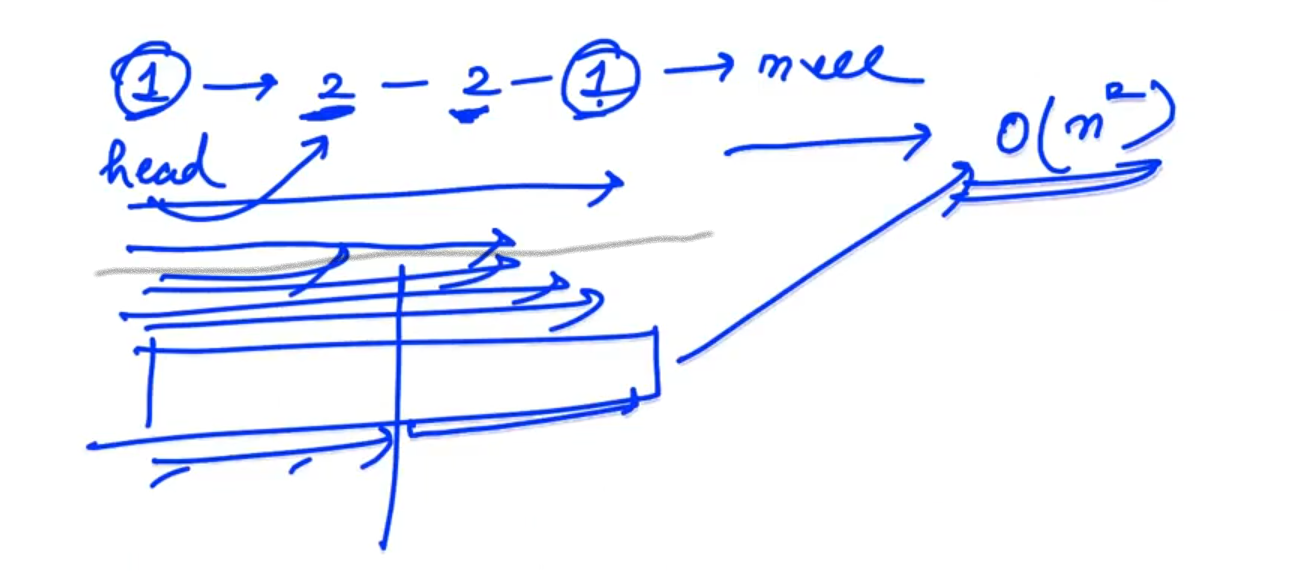 1 → 2 — 2 — 1 → null
head
O(n²)